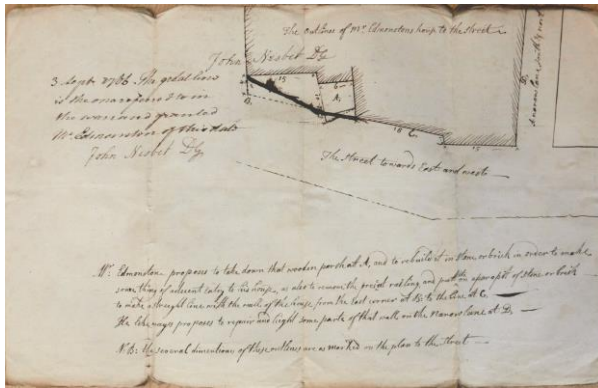 The outlines of Mr. Edmonstons house to the Street
John Nesbet DG
3 Sept 1786 The red line
is the one referred to in
the warrand granted
Mr Edmonston of this date
John Nesbet DG
15
6
A
B
C
D
18 6
a narrow lane south & north
The street towards East and west
Mr. Edmonstone proposes to take down that wooden porch at A, and to rebuild it in stone or brick in order to make
some thing of a decent entry to his house, as also to remove the present railing and put up a parapet of stone or brick
to make a straight line with the wall of the house, from the last corner at B: to the line at C.
He likeways proposes to repair and light some parts of that wall, on the narrow lane at D,
N: B: the several dimentions of these outlines are as marked in the plan to the street